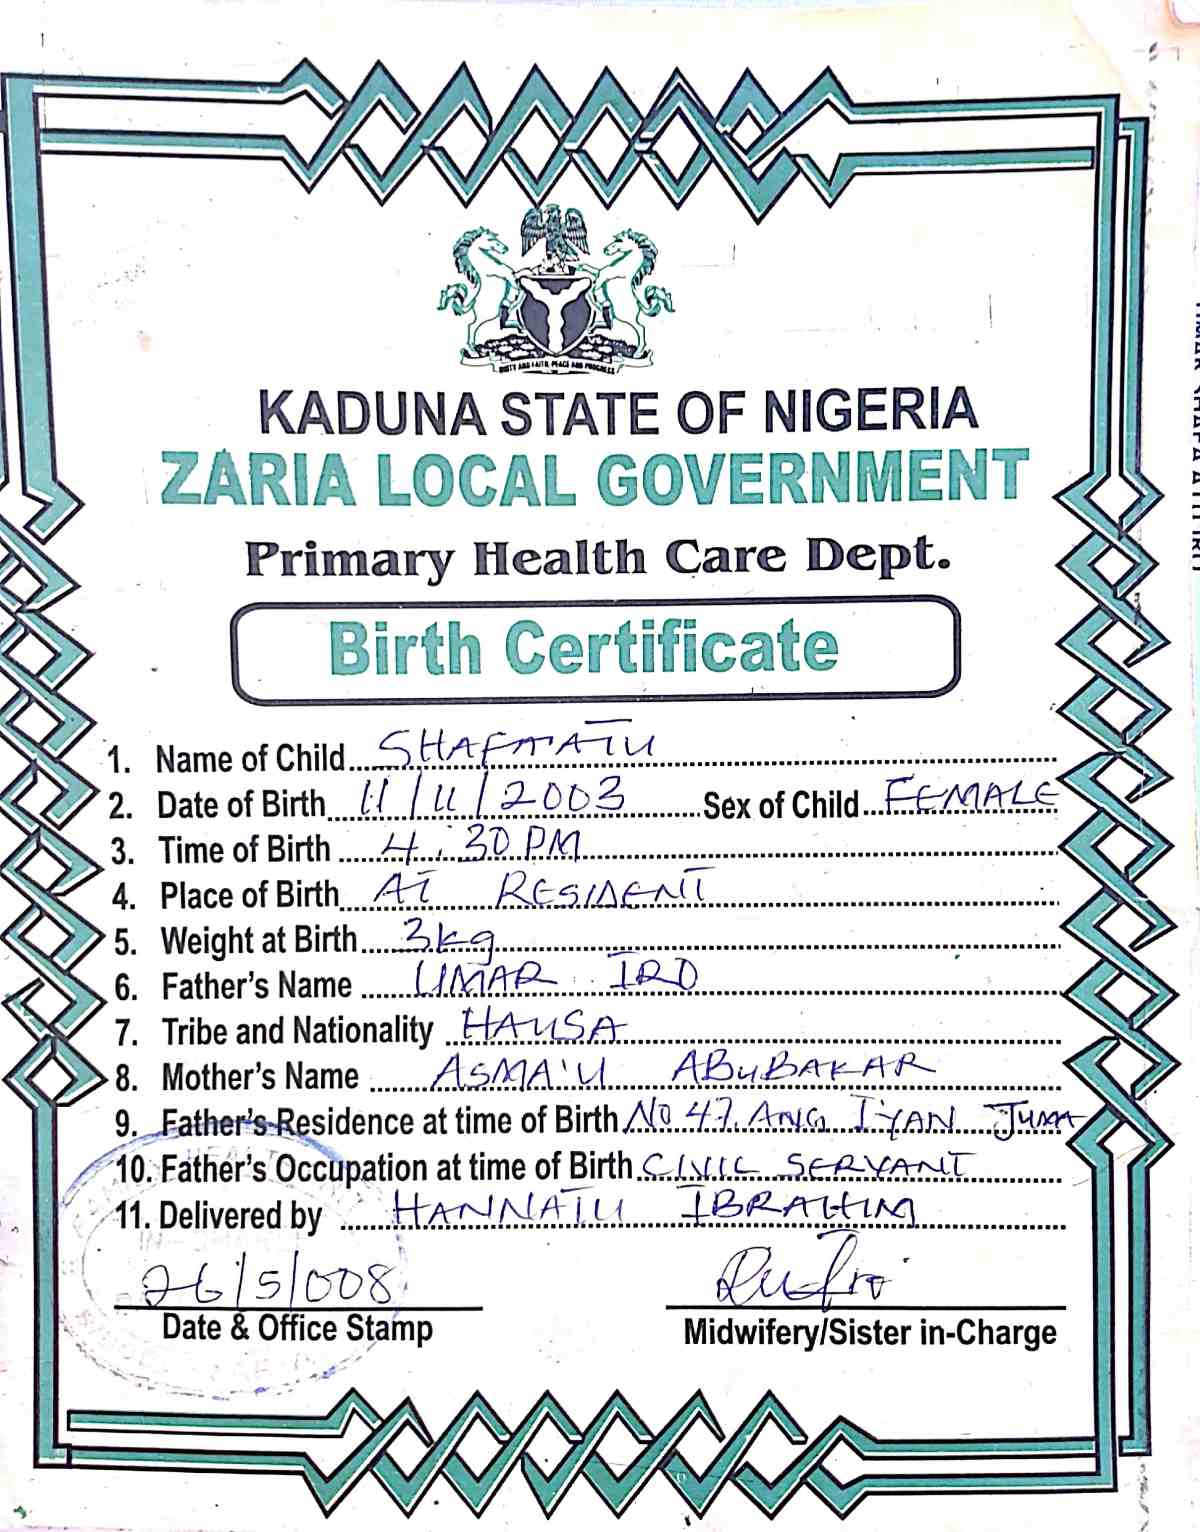 UNITY AND FAITH, PEACE AND PROGRESS
KADUNA STATE OF NIGERIA
ZARIA LOCAL GOVERNMENT
Primary Health Care Dept.
Birth Certificate
1. Name of Child SHAFA'ATU
2. Date of Birth 11/11/2003 Sex of Child FEMALE
3. Time of Birth 4:30 PM
4. Place of Birth AT RESIDENT
5. Weight at Birth 3kg
6. Father's Name UMAR IRO
7. Tribe and Nationality HAUSA
8. Mother's Name ASMA'U ABUBAKAR
9. Father's Residence at time of Birth No 47. ANG IYAN JUMA
10. Father's Occupation at time of Birth CIVIL SERVANT
11. Delivered by HANNATU IBRAHIM
26/5/008
Date & Office Stamp
Midwifery/Sister in-Charge